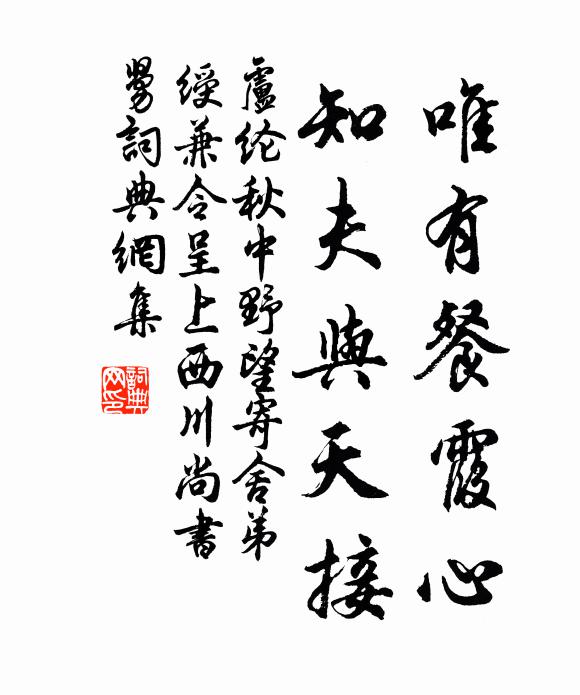 唯有餐霞心
知夫與天接
盧纶秋中野望寄舍弟
綬兼令呈上西川尚書
舅詞典網集
詞典
网印